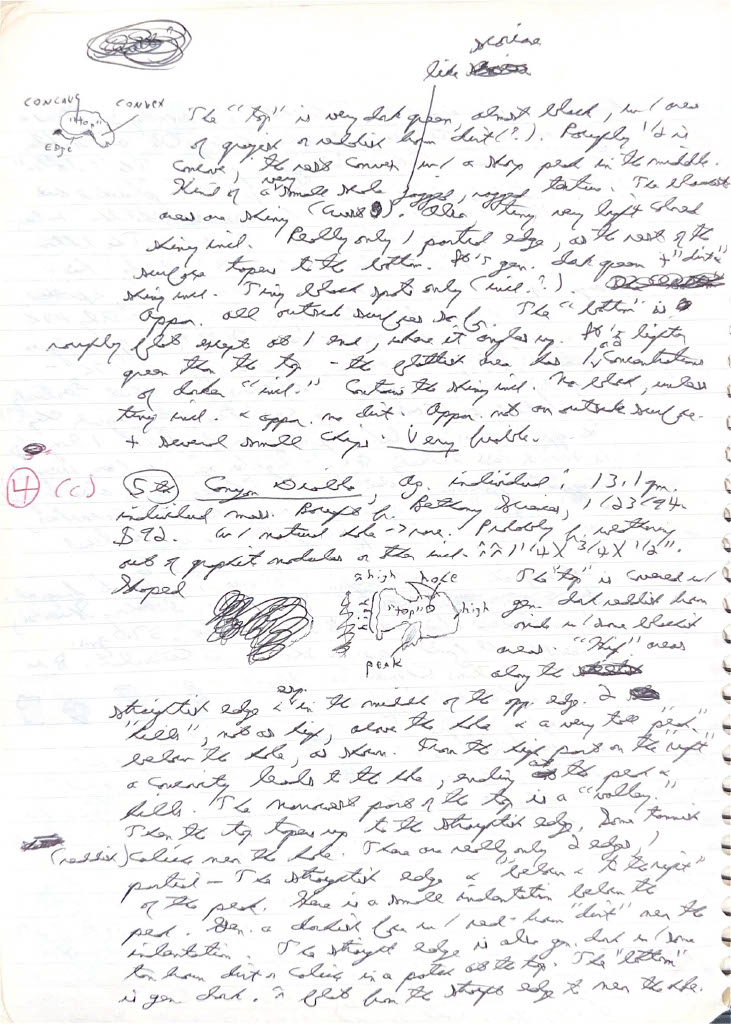 like
CONCAVE
CONVEX
"TOP"
EDGE
The "top" is very dark green, almost black, w/ areas
of grayish or reddish brown dirt (?). Roughly 1/2 is
concave, the rest convex w/ a sharp peak in the middle.
Kind of a very small scale jagged, rugged texture. The blackest
areas are shiny (crust). Also tiny very light colored
shiny incl. Really only 1 partial edge, as the rest of the
surface tapers to the bottom. It's gen. dark green + "dirt" w/
shiny incl. Tiny black spots only (incl.?).
Appar. all outside surfaces so far. The "bottom" is
roughly flat except at 1 end, where it angles up. It's lighter
green than the top - the flattish area has 1 concentrations
of darker "incl." Contains the shiny incl. No black, unless
tiny incl. & appar. no dirt. Appar. not an outside surface.
+ several small chips. Very friable.
4 (c) 5th Canyon Diablo, Az. individual: 13.1 gm.
individual mass. Bought fr. Bethany Sciences, 1/23/94.
$92. w/ natural hole -> rare. Probably fr. weathering
out of graphite nodules or other incl. 1 1/4 X 3/4 X 1/2".
Shaped
high
hole
"top"
high
peak
The "top" is covered w/
gen. dark reddish brown
oxide w/ some blackish
areas. "High" areas
along the
straightish edge & esp. in the middle of the opp. edge. 2
"hills", not as high, above the hole & a very tall "peak"
below the hole, as shown. From the high part on the "right"
a concavity leads to the hole, ending at the peak &
hills. The narrowest part of the top is a "valley."
Then the top tapers up to the straightish edge. Some tannish
(reddish) caliche near the hole. There are really only 2 edges, 1
partial - The straightish edge & "below & to the right"
of the peak. Here is a small indentation below the
peak. Gen. a darkish brown w/ red-brown "dirt" near the
indentation. The straight edge is also gen. dark w/ some
tan brown dirt or caliche in a patch at the top. The "bottom"
is gen. dark. flat from the straight edge to near the hole.